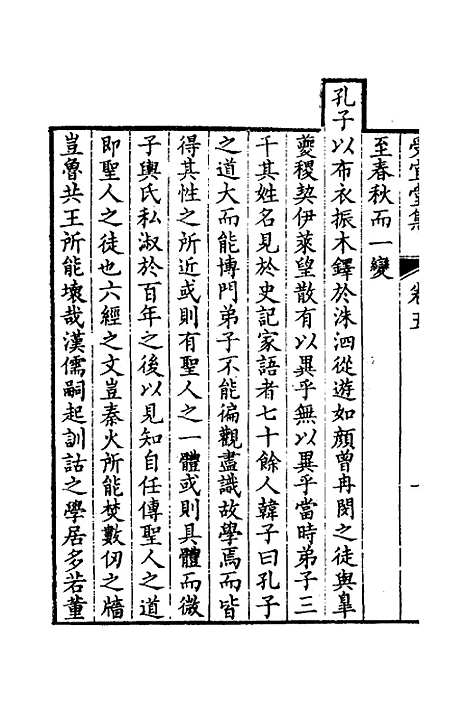 受宜堂集　卷五　一
至春秋而一變
孔子以布衣振木鐸於洙泗從遊如顏曾冉閔之徒與臯
夔稷契伊萊望散有以異乎無以異乎當時弟子三
千其姓名見於史記家語者七十餘人韓子曰孔子
之道大而能博門弟子不能徧觀盡識故學焉而皆
得其性之所近或則有聖人之一體或則具體而微
子輿氏私淑於百年之後以見知自任傳聖人之道
即聖人之徒也六經之文豈秦火所能焚數仞之牆
豈魯共王所能壞哉漢儒嗣起訓詁之學居多若董